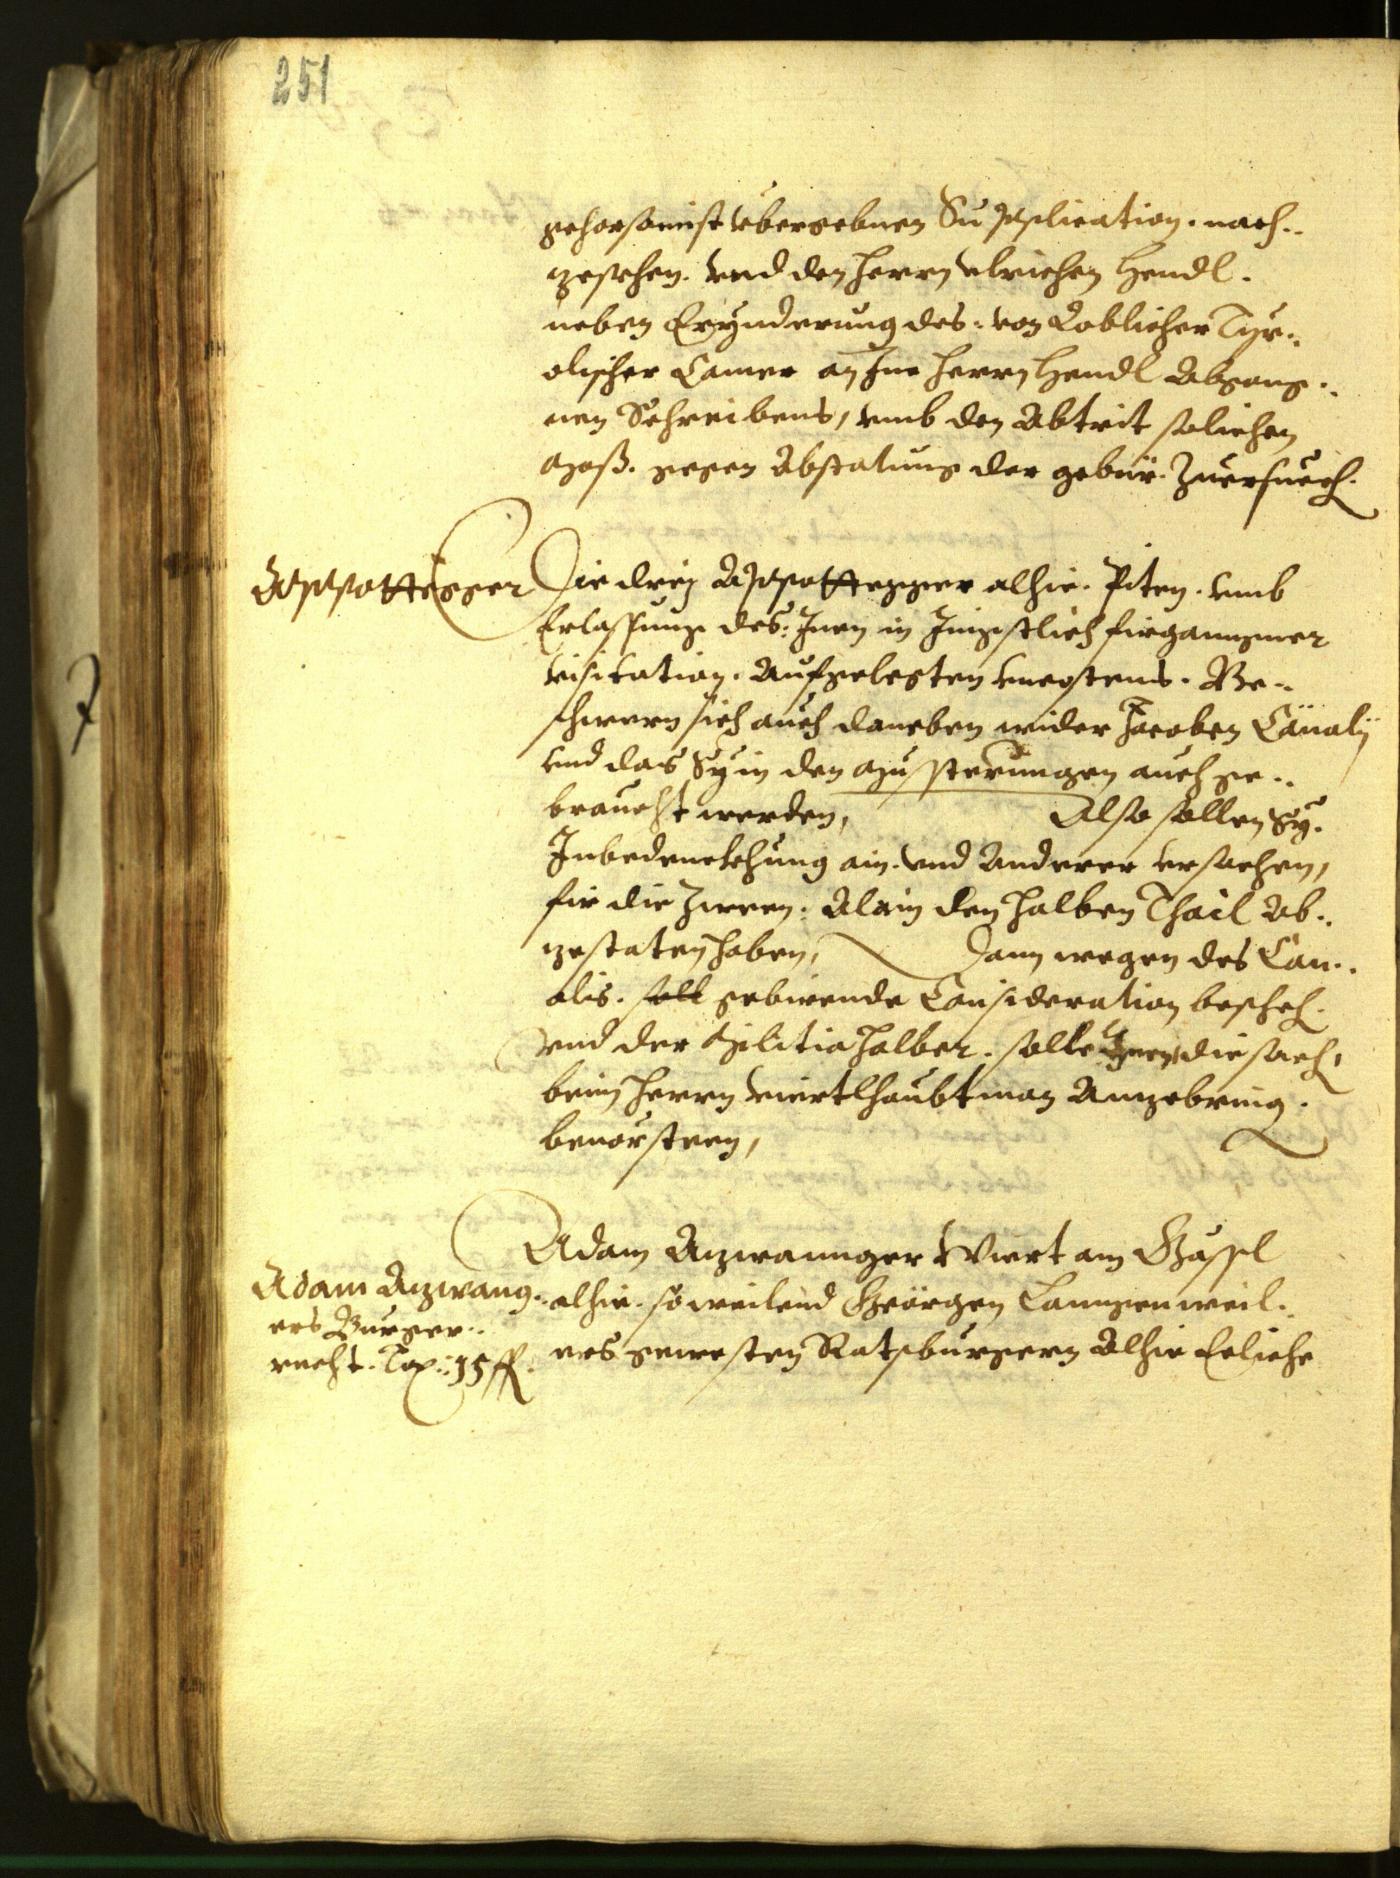 251
gehorsamist ubergebnen Supplication. nach..
zesehen. Und den herrn Ulrichen Hendl.
neben Erynderung des: von Loblicher Tyr..
olischer Camer an Ine herrn Hendl Abgang..
nen Schreibens, umb den Abtrit solichen
moß. gegen Abstatung der gebür. Zuersuech.
Appothegger
Die drey Appothegger alhie. Piten. umb
Erlassung des: Inen in Jungstlich firganngner
visitation. Aufgelegten uncostens. Be..
schwern sich auch daneben wider Jacoben Canalj
und das Sy in den musterungen auch ge..
braucht werden, Also sollen Sy.
Inbedenckhung ain. und Anderer ursachen,
fir die Zween: Alain den halben Thail Ab..
gestaten haben, Dann wegen des Can..
alis. soll gebirende Consideration bescheh.
und der Militia halber. solle Inen die sach,
beim herrn viertlhaubtman Anzebring.
bevorsteen,
Adam Anzwanng..
ers Burger..
recht. Tax: 15 fl.
Adam Anzwannger Wiert am Gässl
alhie. so weilend Geörgen Lanngenweil..
ers gewesten Ratsburgern Alhie Eeliche